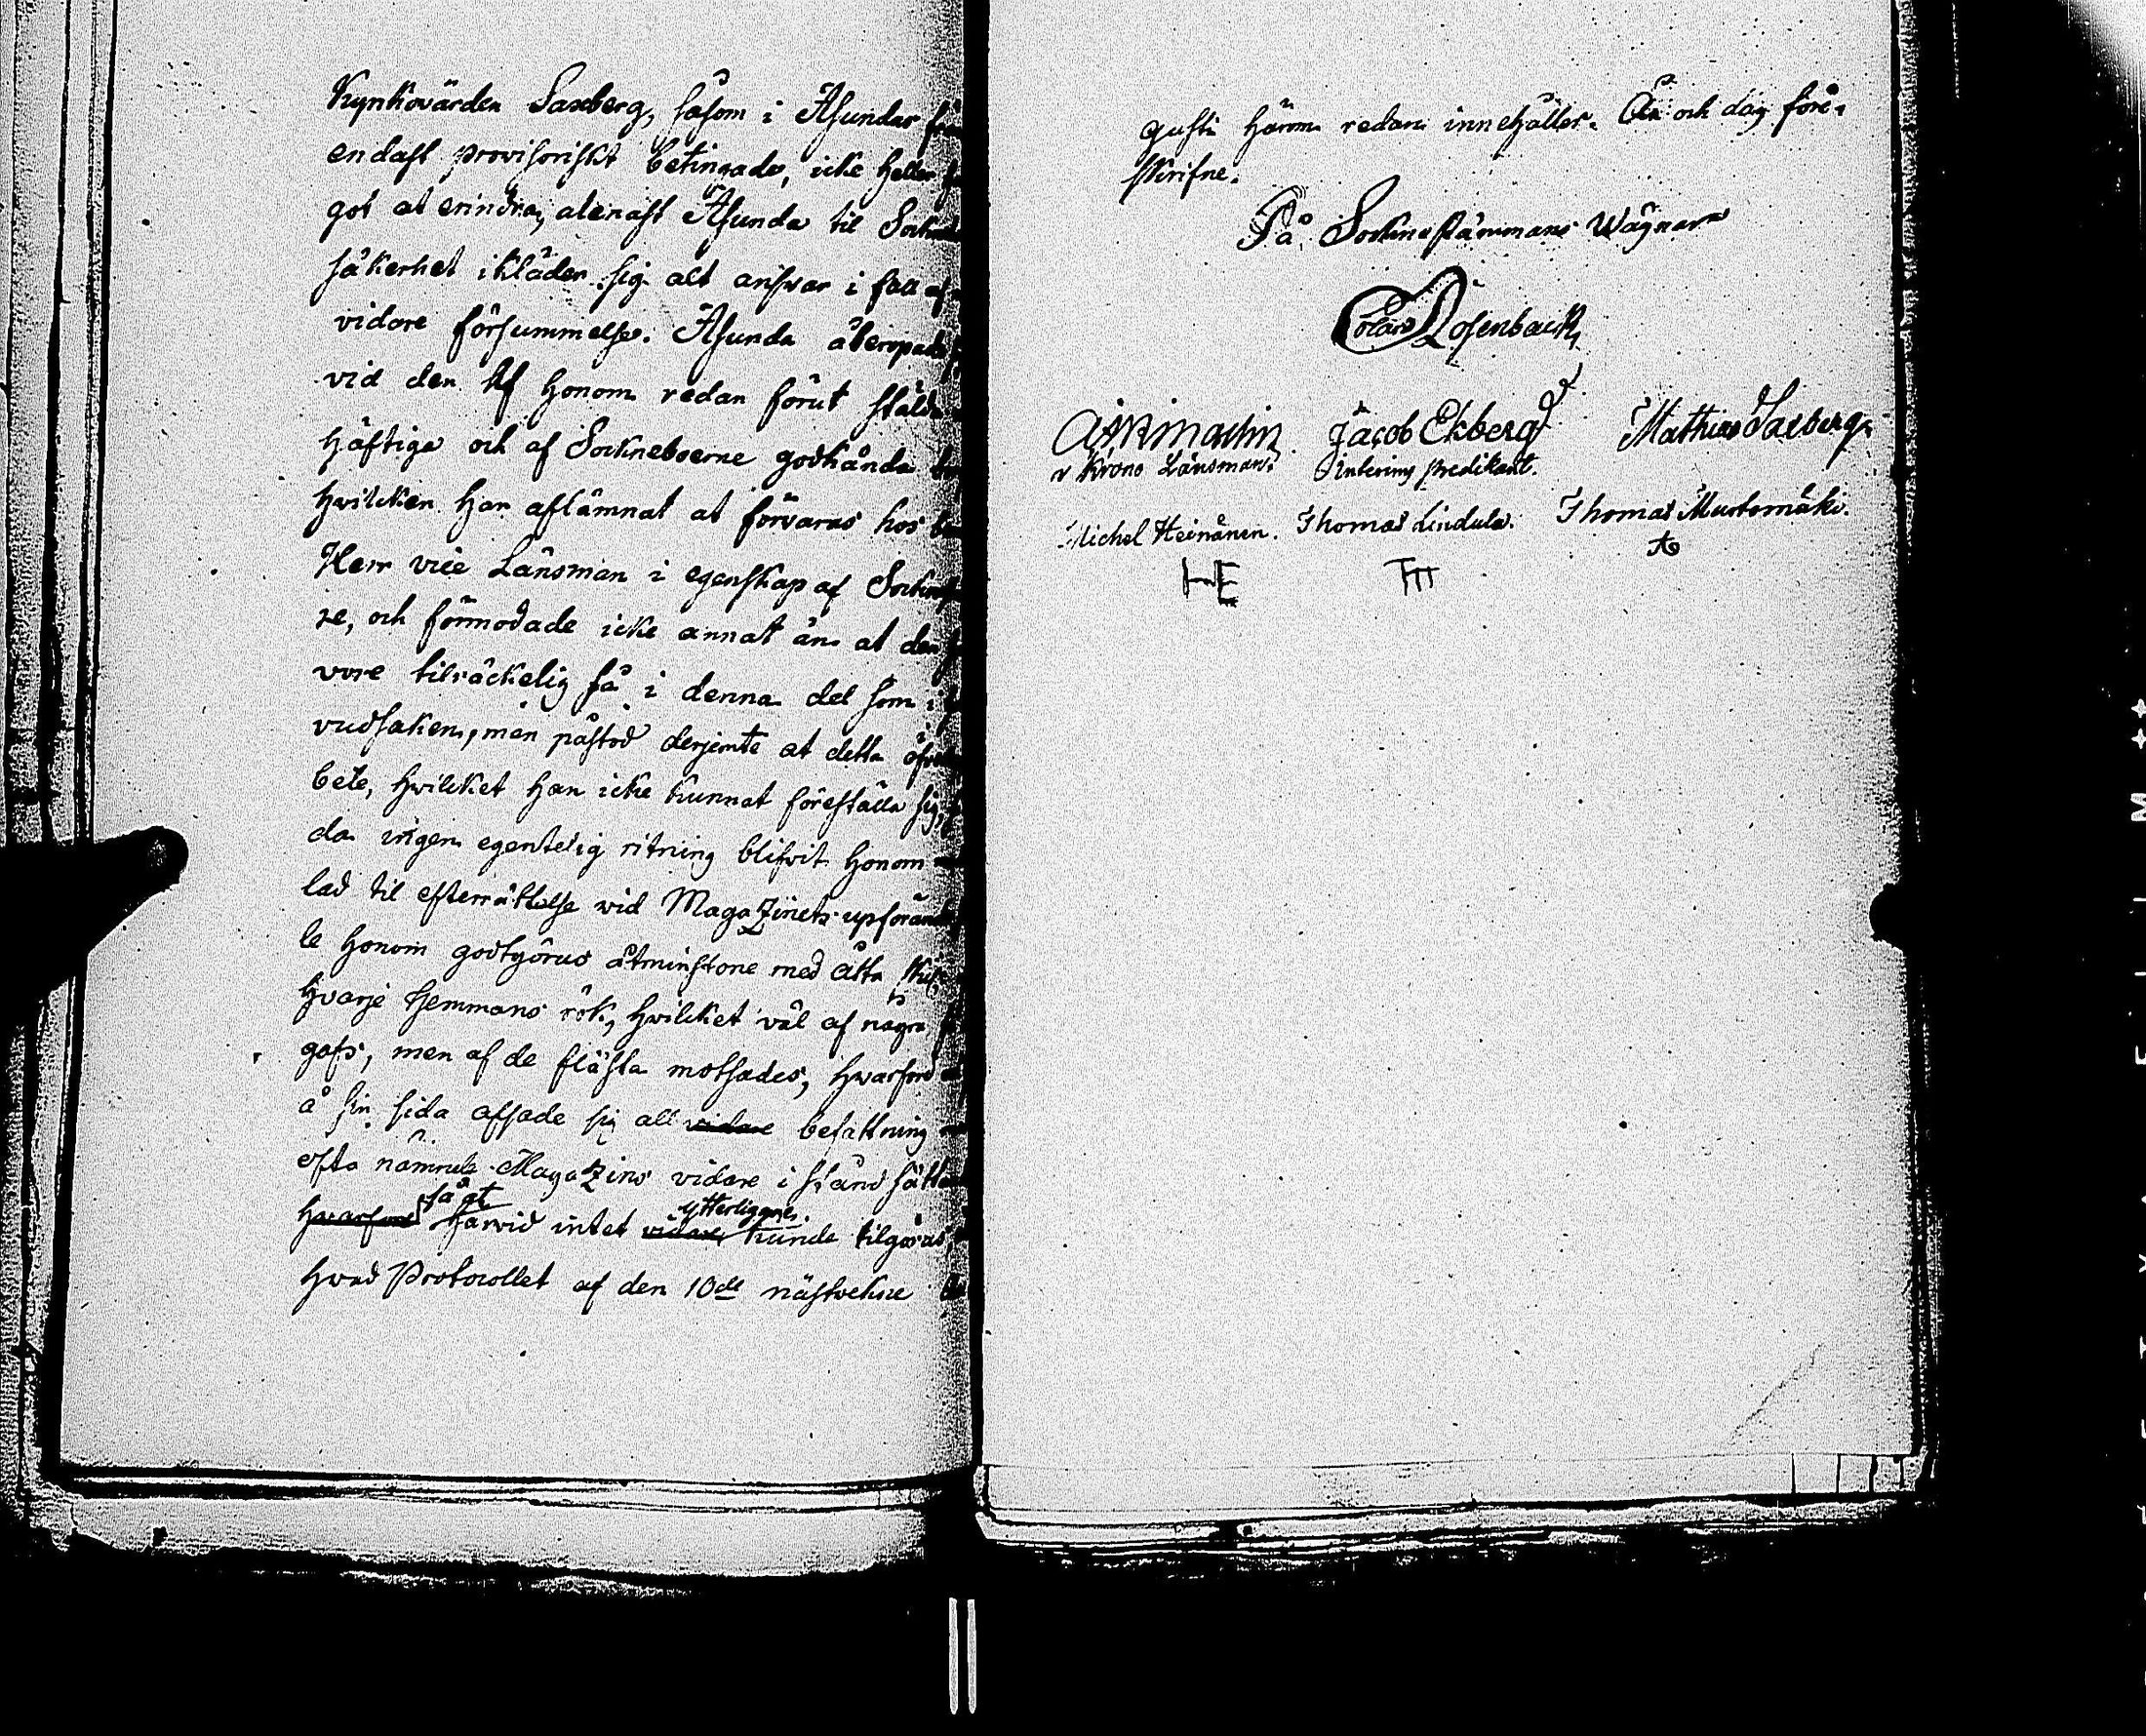 Kyrkovärden Saxberg, såsom i Åsundas
endast provisoriskt betingade, icke heller
got at erindra, alenast Åsunda til
säkerhet ikläder sig alt answar i fall af
vidare försummelse. Åsunda åberopade
vid den af honom redan förut stälde
häftige och af Sockneboerne godkända
hvilcken han aflämnat at förvaras hos
Herr vice Länsman i egenskap af
re, och förmodade icke annat än at den
vore tilräckelig så i denna del som i
vudsaken, men påstod derjemte at detta
bete, hvilcket han icke kunnat föreställa sig,
da ingen egentelig ritning blifvit honom
lad til efterrättelse vid Magazinets
le honom godtgöras åtminstone med åtta
hvarje hemmans rök, hvilcket väl af några
gafs, men af de flästa motsades, hwarför
å sin sida afsade sig all vidare befattning
ofta nämnde Magazins vidare i stånd sätta
så at ytterligare
hwarföre härvid intet vidare kunde tilgöras,
hvad Protocollet af den 10de nästvekne
gusti härom redan innehåller. År och dag före-
skrifne.
På Sockne stämmans Wägnar
Rosenback
Jacob Ekberg Mathias Saxberg
v Krono Länsman. Interims predikant.
Michel Heinänen. Thomas Lindula. Thomas Mustomäki.
HE TTT